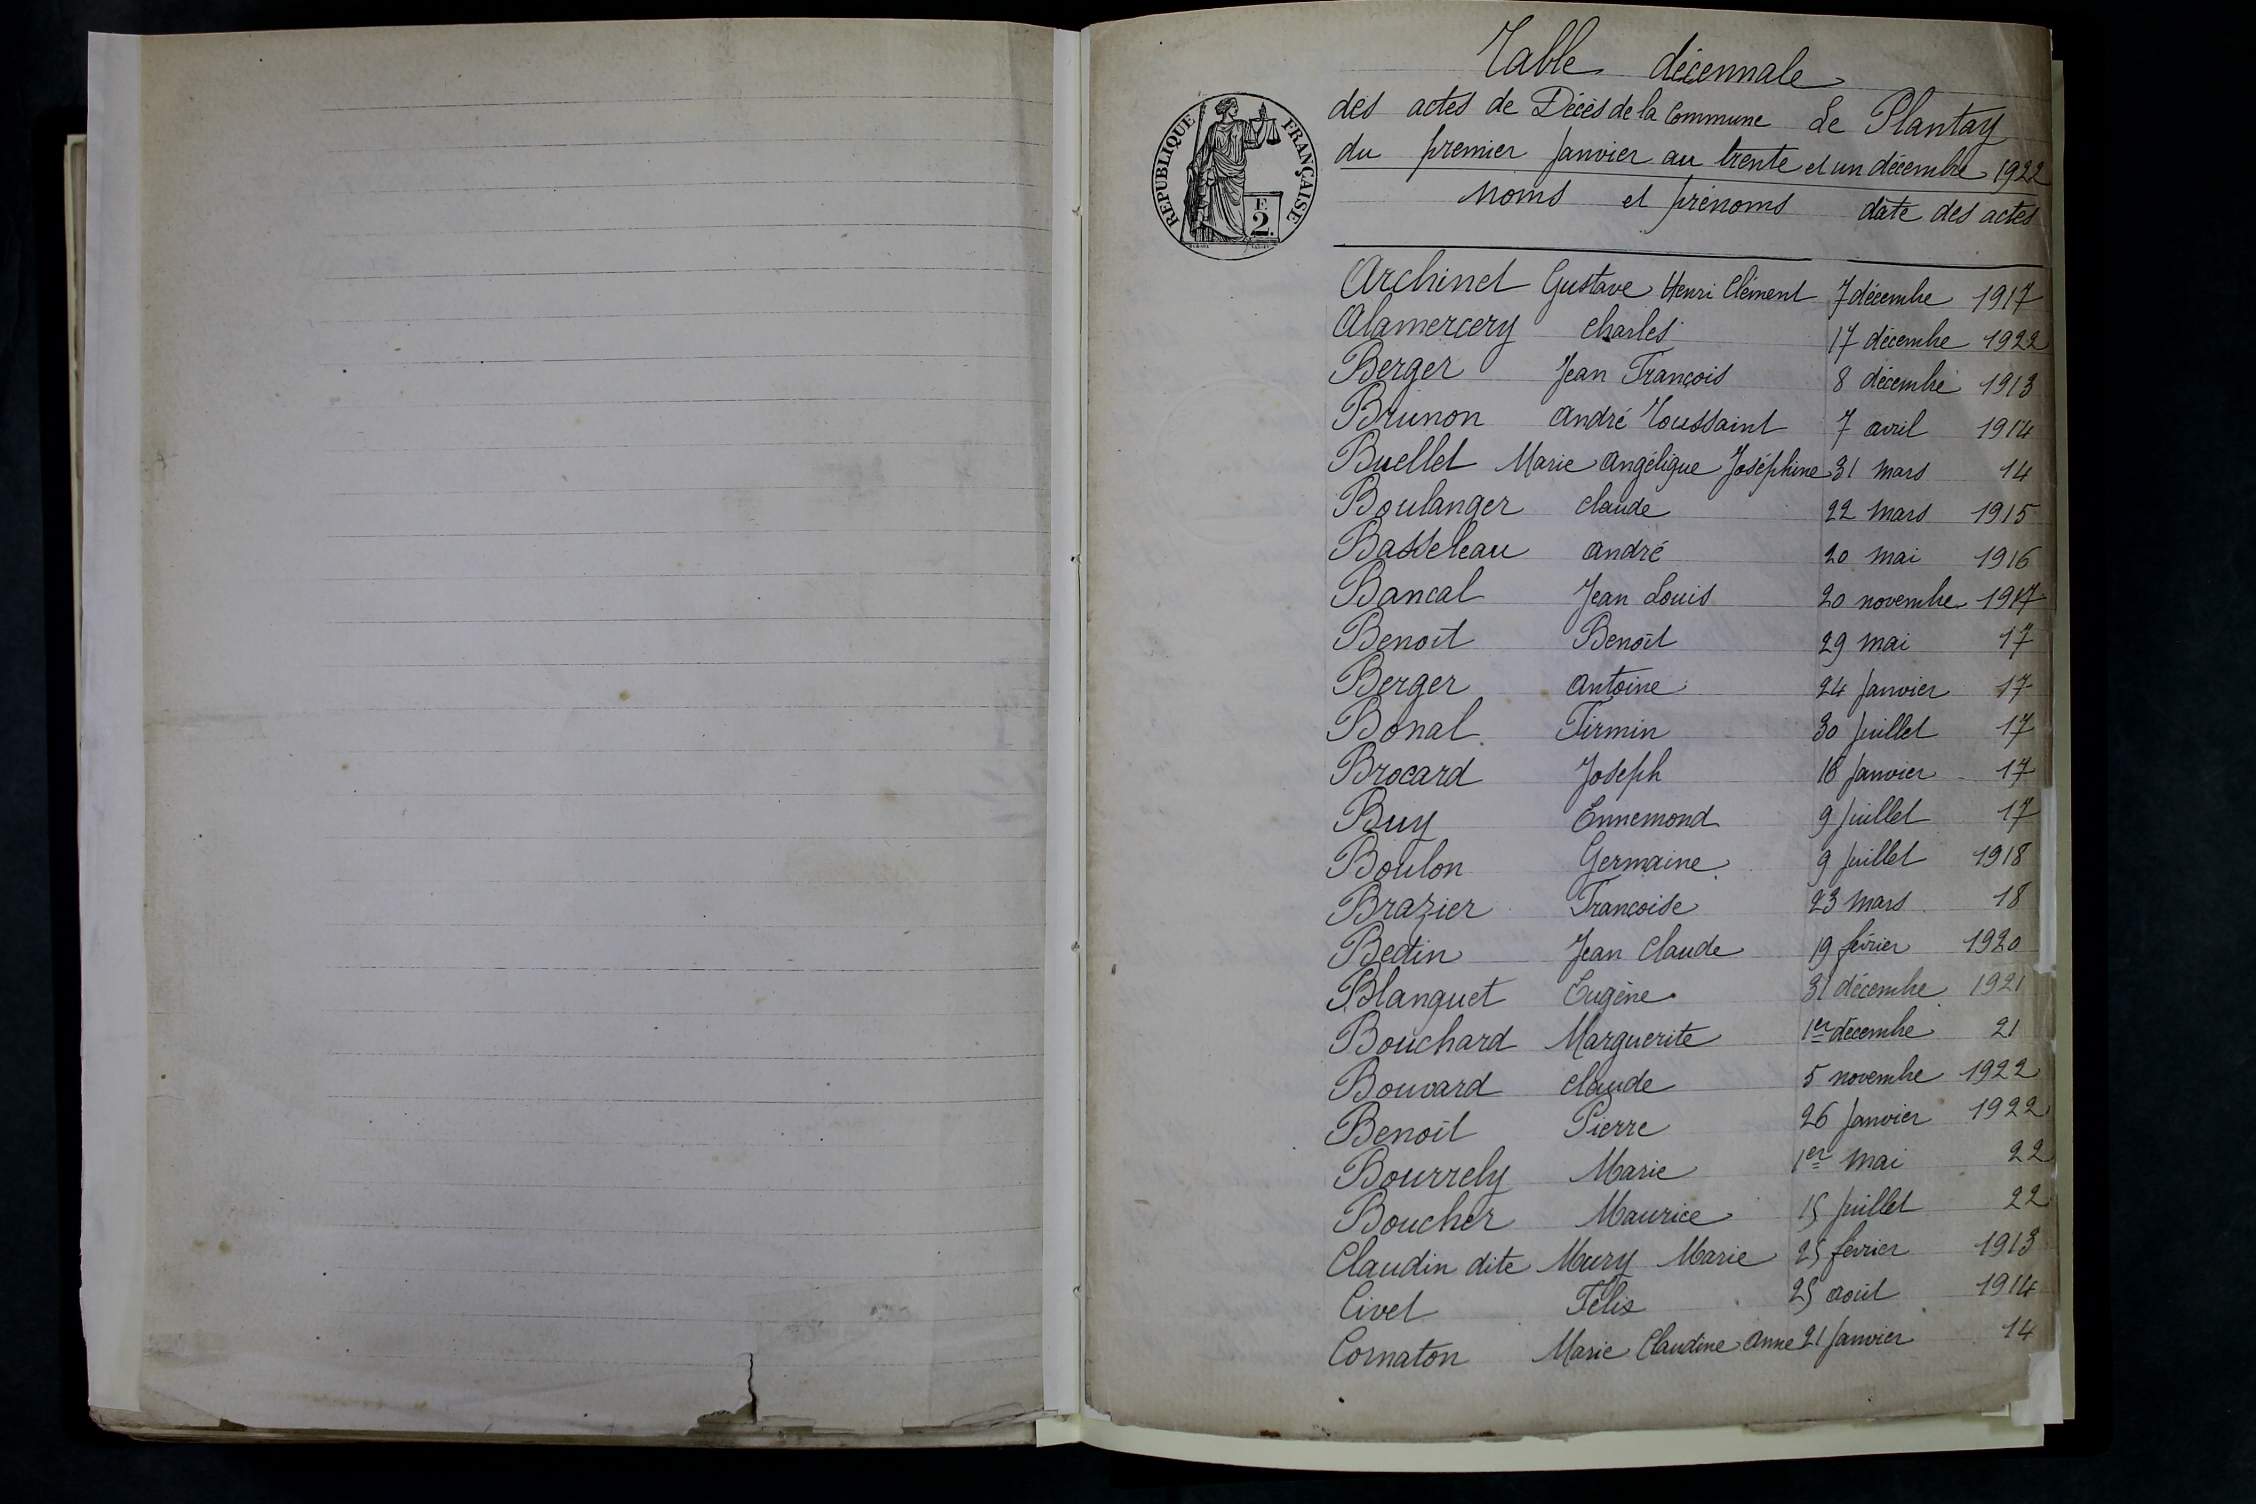 Table décennale
des actes de Décès de la Commune Le Plantay
du premier Janvier au trente et un décembre 1922
RÉPUBLIQUE FRANÇAISE
E
2.
Noms et prénoms date des actes
Archinet Gustave Henri Clément 7 décembre 1917
Alamercery Charles 17 décembre 1922
Berger Jean François 8 décembre 1913
Brunon André Toussaint 7 avril 1914
Buellet Marie Angélique Joséphine 31 Mars 14
Boulanger Claude 22 Mars 1915
Basseleau André 20 Mai 1916
Bancal Jean Louis 20 novembre 1917
Benoit Benoit 29 Mai 17
Berger Antoine 24 Janvier 17
Bonal Firmin 30 Juillet 17
Brocard Joseph 16 Janvier 17
Buy Ennemond 9 Juillet 17
Boulon Germaine 9 Juillet 1918
Brazier Francoise 23 Mars 18
Bedin Jean Claude 19 février 1920
Blanguet Eugène 31 décembre 1921
Bouchard Marguerite 1er décembre 21
Bouvard Claude 5 novembre 1922
Benoit Pierre 26 Janvier 1922
Bourrely Marie 1er Mai 22
Boucher Maurice 15 Juillet 22
Claudin dite Mury Marie 25 février 1913
Civet Félix 25 aout 1914
Cornaton Marie Claudine Anne 21 Janvier 14